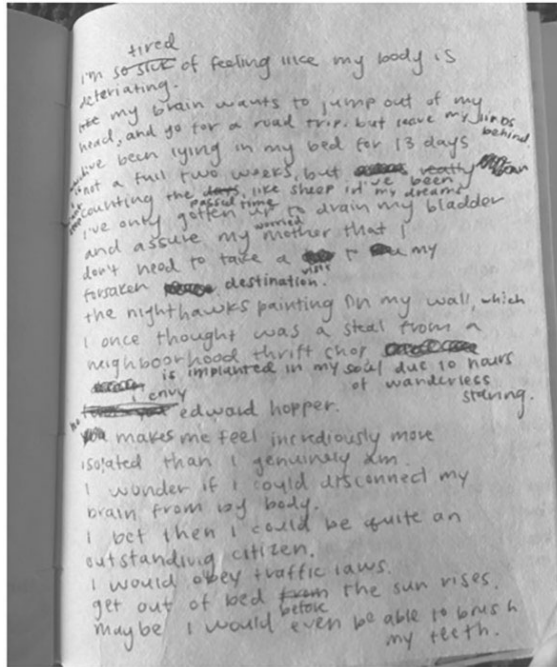 tired
i'm so sick of feeling like my body is
deteriating.
like my brain wants to jump out of my
head, and go for a road trip, but leave my limbs
behind.
i've been lying in my bed for 13 days
not a full two weeks, but i've been
counting the days, like sheep in my dreams
passed time
i've only gotten up to drain my bladder
and assure my worried mother that I
don't need to take a visit to my
forsaken destination.
the nighthawks painting on my wall, which
I once thought was a steal from a
neighboorhood thrift shop
is implanted in my soul due to hours
of wanderless
staring.
i envy
edward hopper.
he makes me feel incrediously more
isolated than I genuinely am.
I wonder if I could disconnect my
brain from my body.
I bet then I could be quite an
outstanding citizen.
I would obey traffic laws.
get out of bed from the sun rises.
before
maybe I would even be able to brush
my teeth.